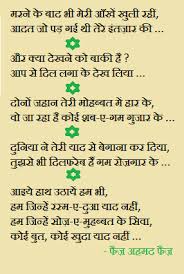 मरने के बाद भी मेरी आँखें खुली रहीं,
आदत जो पड़ गई थी तेरे इंतज़ार की ...
और क्या देखने को बाकी हैं ?
आप से दिल लगा के देख लिया ...
दोनों जहान तेरी मोहब्बत में हार के,
वो जा रहा हैं कोई शब-ए-गम गुजार के ...
दुनिया ने तेरी याद से बेगाना कर दिया,
तुझसे भी दिलफरेब हैं गम रोज़गार के ...
आइये हाथ उठायें हम भी,
हम जिन्हें रस्म-ए-दुआ याद नहीं,
हम जिन्हें सोज़-ए-मुहब्बत के सिवा,
कोई बुत, कोई खुदा याद नहीं ...
- फैज़ अहमद फैज़